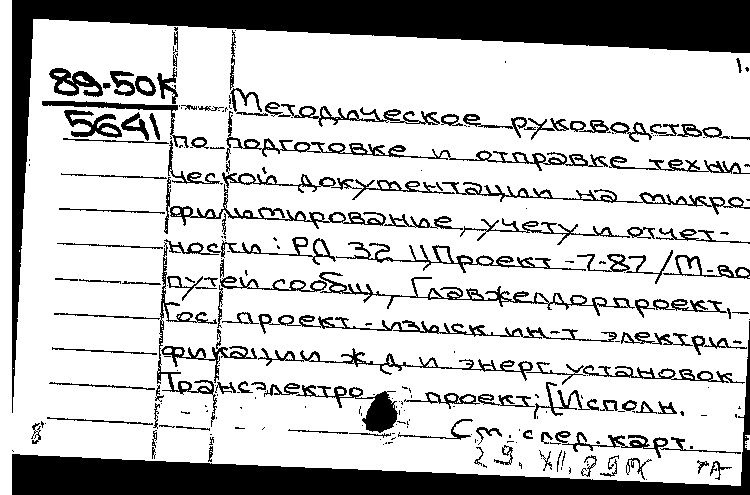 1.
89-50К
5641
Методическое руководство
по подготовке и отправке техни-
ческой документации на микро-
фильмирование, учету и отчет-
ности: РД 32 ЦПроект-7-87/М-во
путей сообщ., Главжелдорпроект,
Гос. проект.-изыск. ин-т электри-
фикации ж.д. и энерг. установок
Трансэлектропроект; [Исполн.
См. след. карт.
8
29. XII. 89